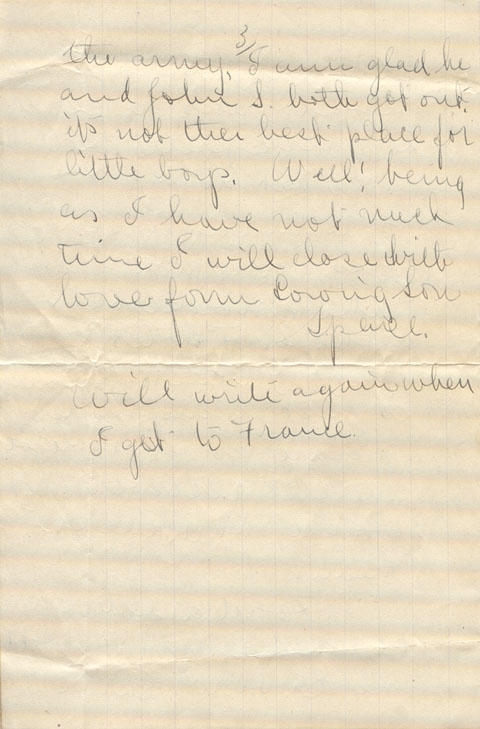 3/
the army, I am glad he
and John S. both got out.
it's not the best place for
little boys. Well! being
as I have not much
time I will close with
love form Loving Son
Spence.
Will write again when
I get to France.